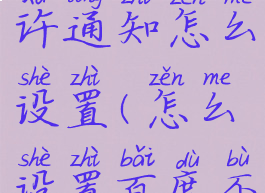 许通知怎么
shè zhì zěn me
设置(怎么
shè zhì bǎi dù bù
设置百度不